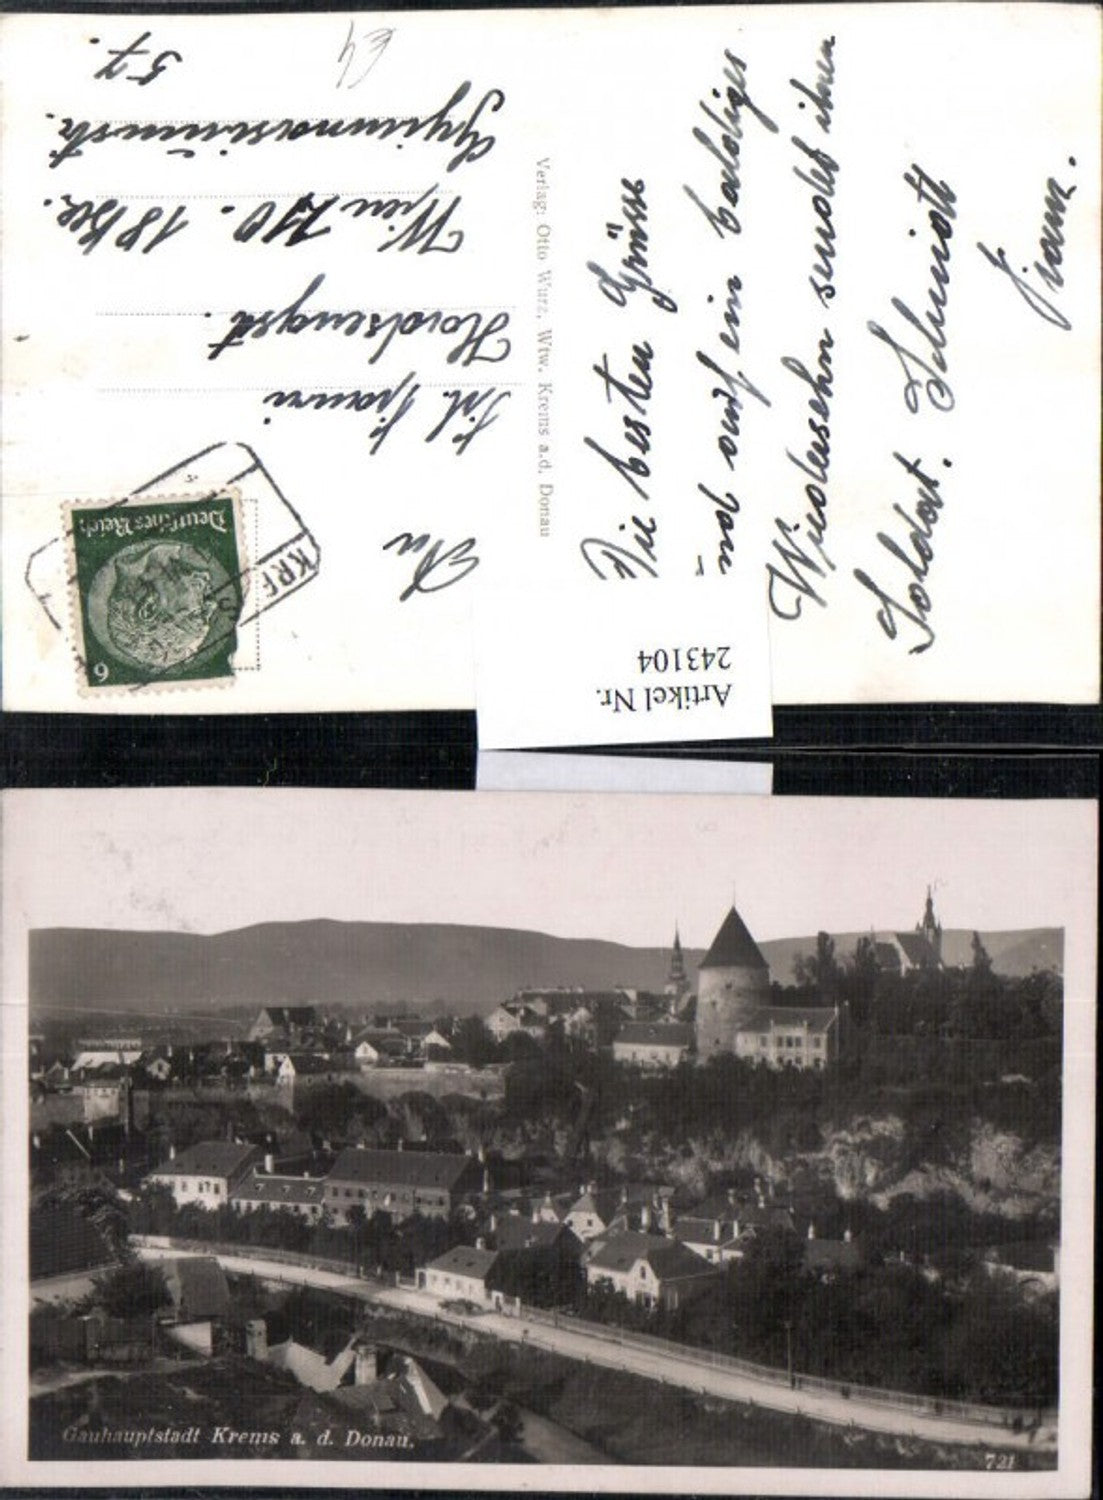 Die besten Grüsse
und auf ein baldiges
Wiedersehn sendet ihnen
Soldat. Schmidt
Franz.
Verlag: Otto Wurz, Wtw. Krems a.d. Donau
Deutsches Reich
6
KRE
An
Frl. Franzi
Wien 210. 18 Bez.
Gymnasiumstr.
57.
Artikel Nr.
243104
Gauhauptstadt Krems a. d. Donau.
721